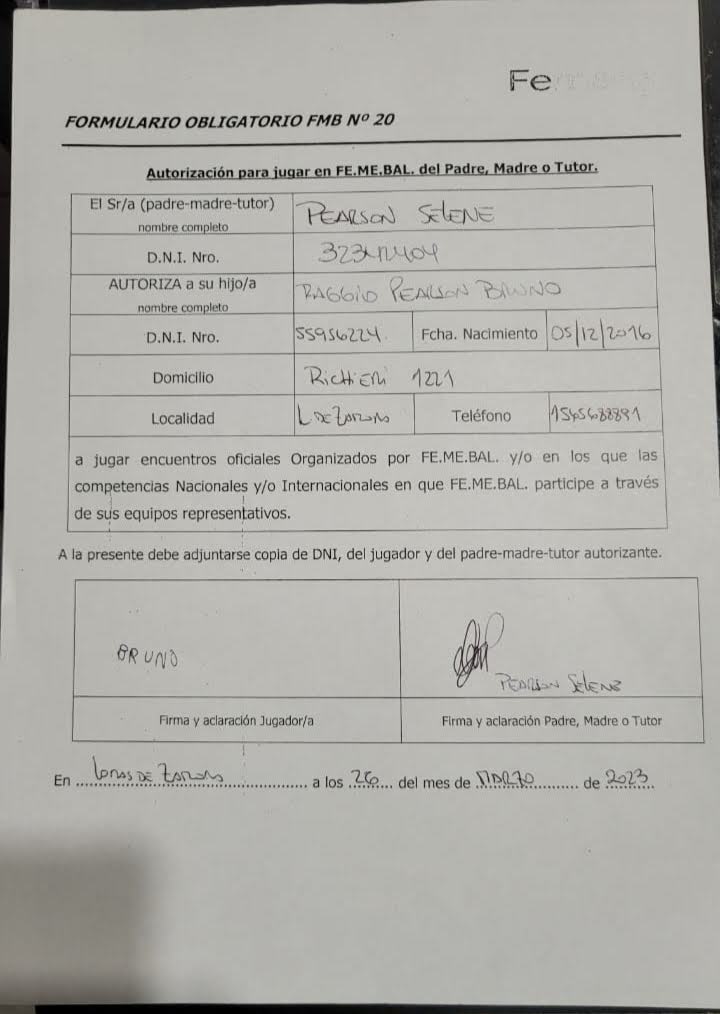 Fe
FORMULARIO OBLIGATORIO FMB Nº 20
Autorización para jugar en FE.ME.BAL. del Padre, Madre o Tutor.
El Sr/a (padre-madre-tutor) PEARSON SELENE
nombre completo
D.N.I. Nro.
AUTORIZA a su hijo/a RAGGIO PEARSON BRUNO
nombre completo
D.N.I. Nro. 55956224 Fcha. Nacimiento 05/12/2016
Domicilio RICHIERI 1221
Localidad L DE ZAMORA Teléfono 1545688891
a jugar encuentros oficiales Organizados por FE.ME.BAL. y/o en los que las
competencias Nacionales y/o Internacionales en que FE.ME.BAL. participe a través
de sus equipos representativos.
A la presente debe adjuntarse copia de DNI, del jugador y del padre-madre-tutor autorizante.
BRUNO PEARSON SELENE
Firma y aclaración Jugador/a Firma y aclaración Padre, Madre o Tutor
En LOMAS DE ZAMORA a los 26 del mes de MARZO de 2023